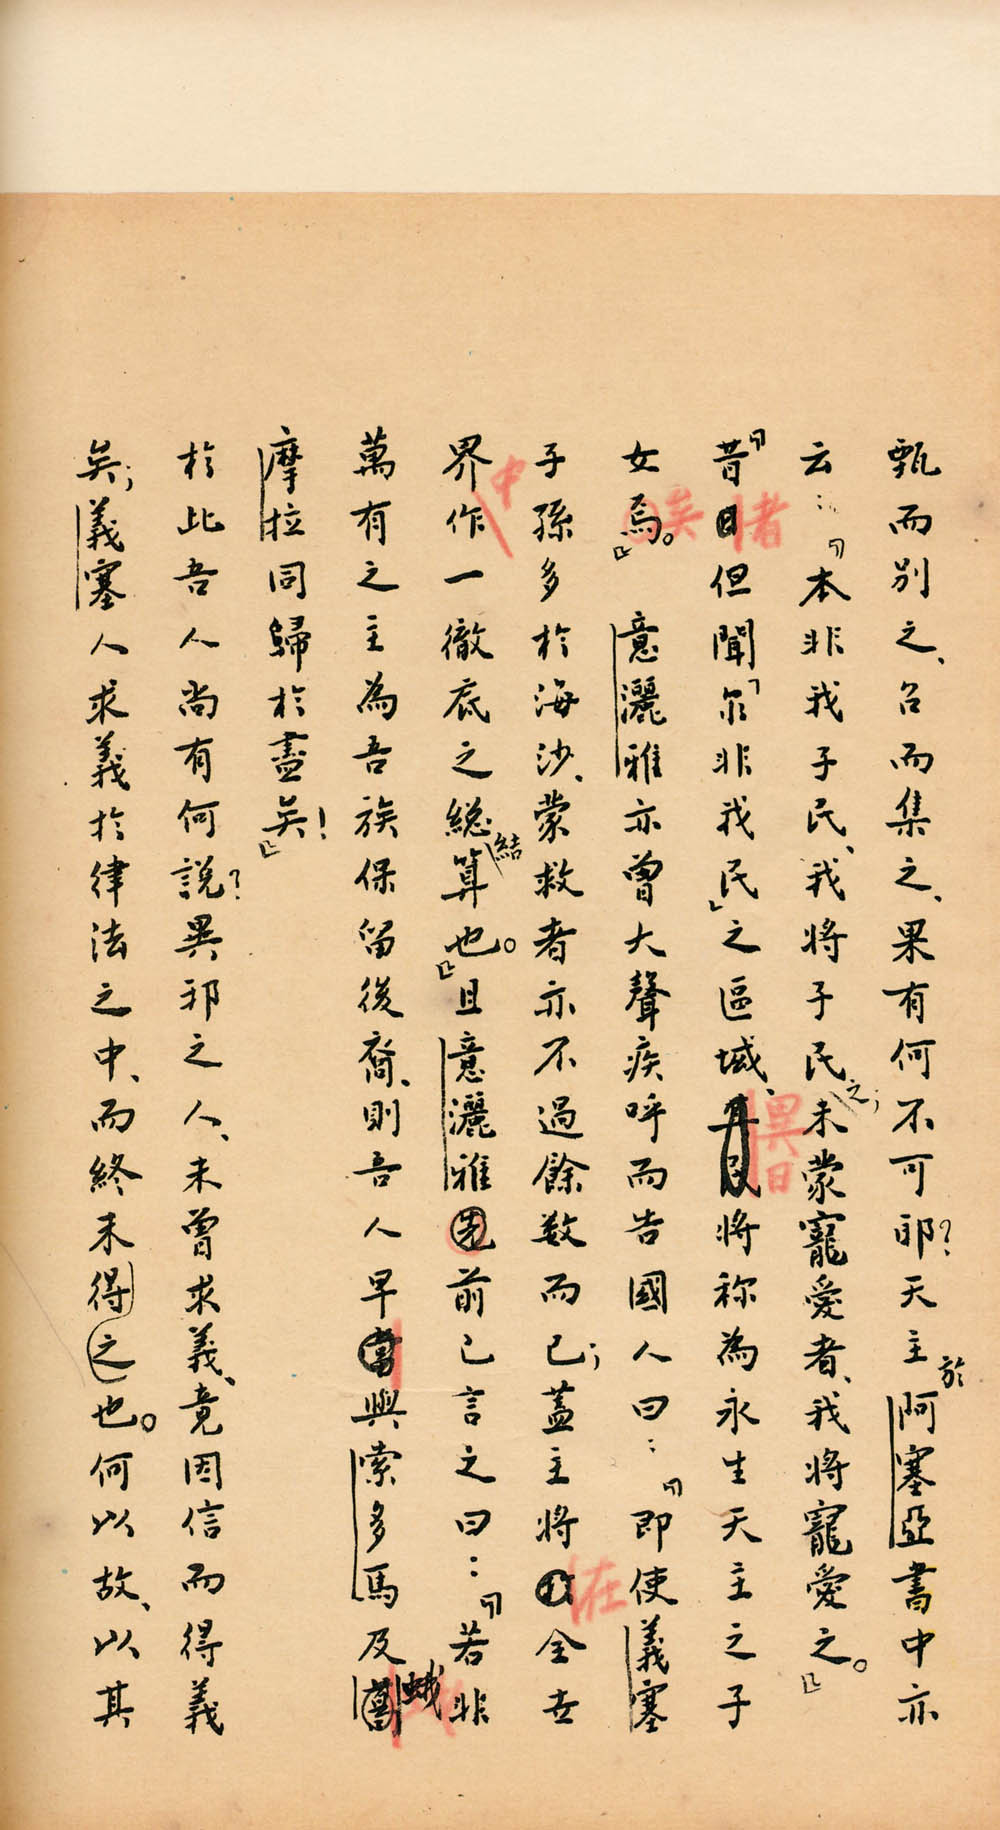 甄而別之、召而集之、果有何不可耶？天主於阿塞亞書中亦
云：『本非我子民、我將子民之；未蒙寵愛者、我將寵愛之。』
『昔者日但聞「爾非我民」之區域、異日將稱為永生天主之子
女焉。』矣意灑雅亦曾大聲疾呼而告國人曰：『即使義塞
子孫多於海沙、蒙救者亦不過餘數而已；蓋主將在全世
界中作一徹底之總結算也。』且意灑雅先前已言之曰：『若非
萬有之主為吾族保留後裔、則吾人早當與索多馬及蛾
摩拉同歸於盡矣！』
於此吾人尚有何說？異邪之人、未曾求義、竟因信而得義
矣；義塞人求義於律法之中、而終未得之也。何以故、以其